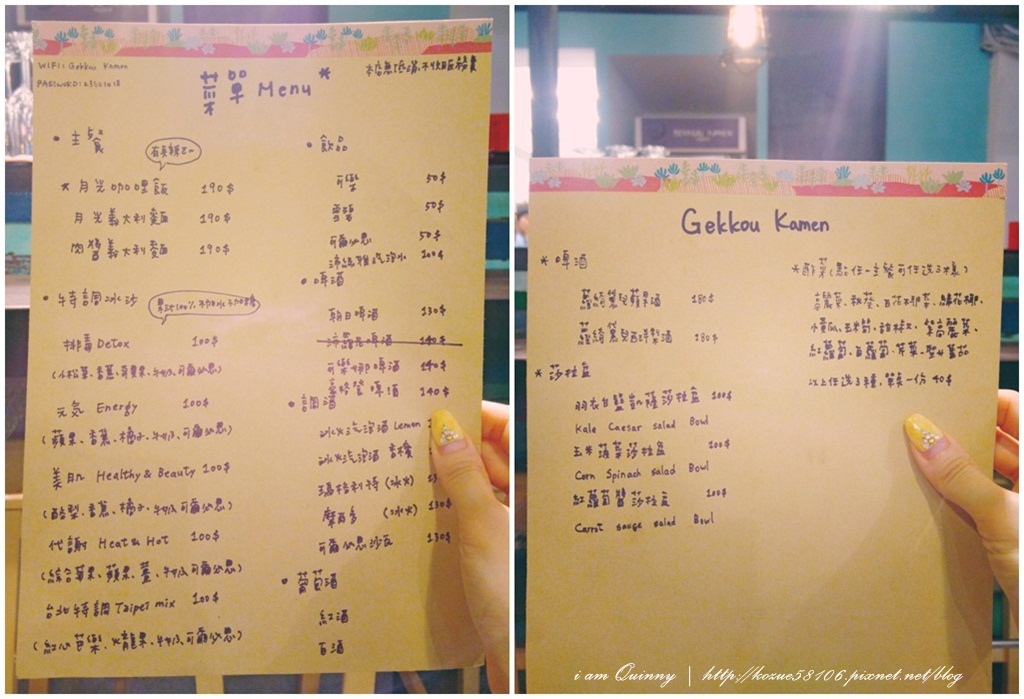 WIFI: Gekkou Kamen
菜單 Menu
• 主餐
★ 月光咖哩飯 190$
月光義大利麵 190$
肉醬義大利麵 190$
• 特調冰沙
排毒 Detox 100$
元氣 Energy 100$
(蘋果、香蕉、橘子、牛奶、可爾必思)
美肌 Healthy & Beauty 100$
(酪梨、香蕉、橘子、牛奶、可爾必思)
代謝 Heat & Hot 100$
(綜合莓果、蘋果、薑、牛奶、可爾必思)
台北特調 Taipei mix 100$
(紅心芭樂、火龍果、牛奶、可爾必思)
• 飲品
可樂 50$
雪碧 50$
可爾必思 50$
沛綠雅汽泡水 100$
• 啤酒
朝日啤酒 130$
可樂娜啤酒 140$
麥格登啤酒 140$
• 調酒
冰火汽泡酒 Lemon
冰火汽泡酒 香檳
瑪格利特 (冰火)
摩西多 (冰火) 130$
可爾必思沙瓦 130$
• 葡萄酒
紅酒
白酒
Gekkou Kamen
* 啤酒
蘿綺葉兒蘋果酒 180$
蘿綺葉兒西洋梨酒 180$
* 莎拉盆
羽衣甘藍凱薩莎拉盆 100$
Kale Caesar salad Bowl
玉米菠菜莎拉盆 100$
Corn Spinach salad Bowl
紅蘿蔔醬莎拉盆 100$
Carrot sauge salad Bowl
* 蔬菜 (點任一主餐可任選3樣)
高麗菜、秋葵、白花椰菜、綠花椰、
小黃瓜、玉米筍、甜椒、紫高麗菜、
紅蘿蔔、白蘿蔔、芹菜、聖女蕃茄
以上任選3種，單點一份 40$
i am Quinny | http://kozue58106.pixnet.net/blog